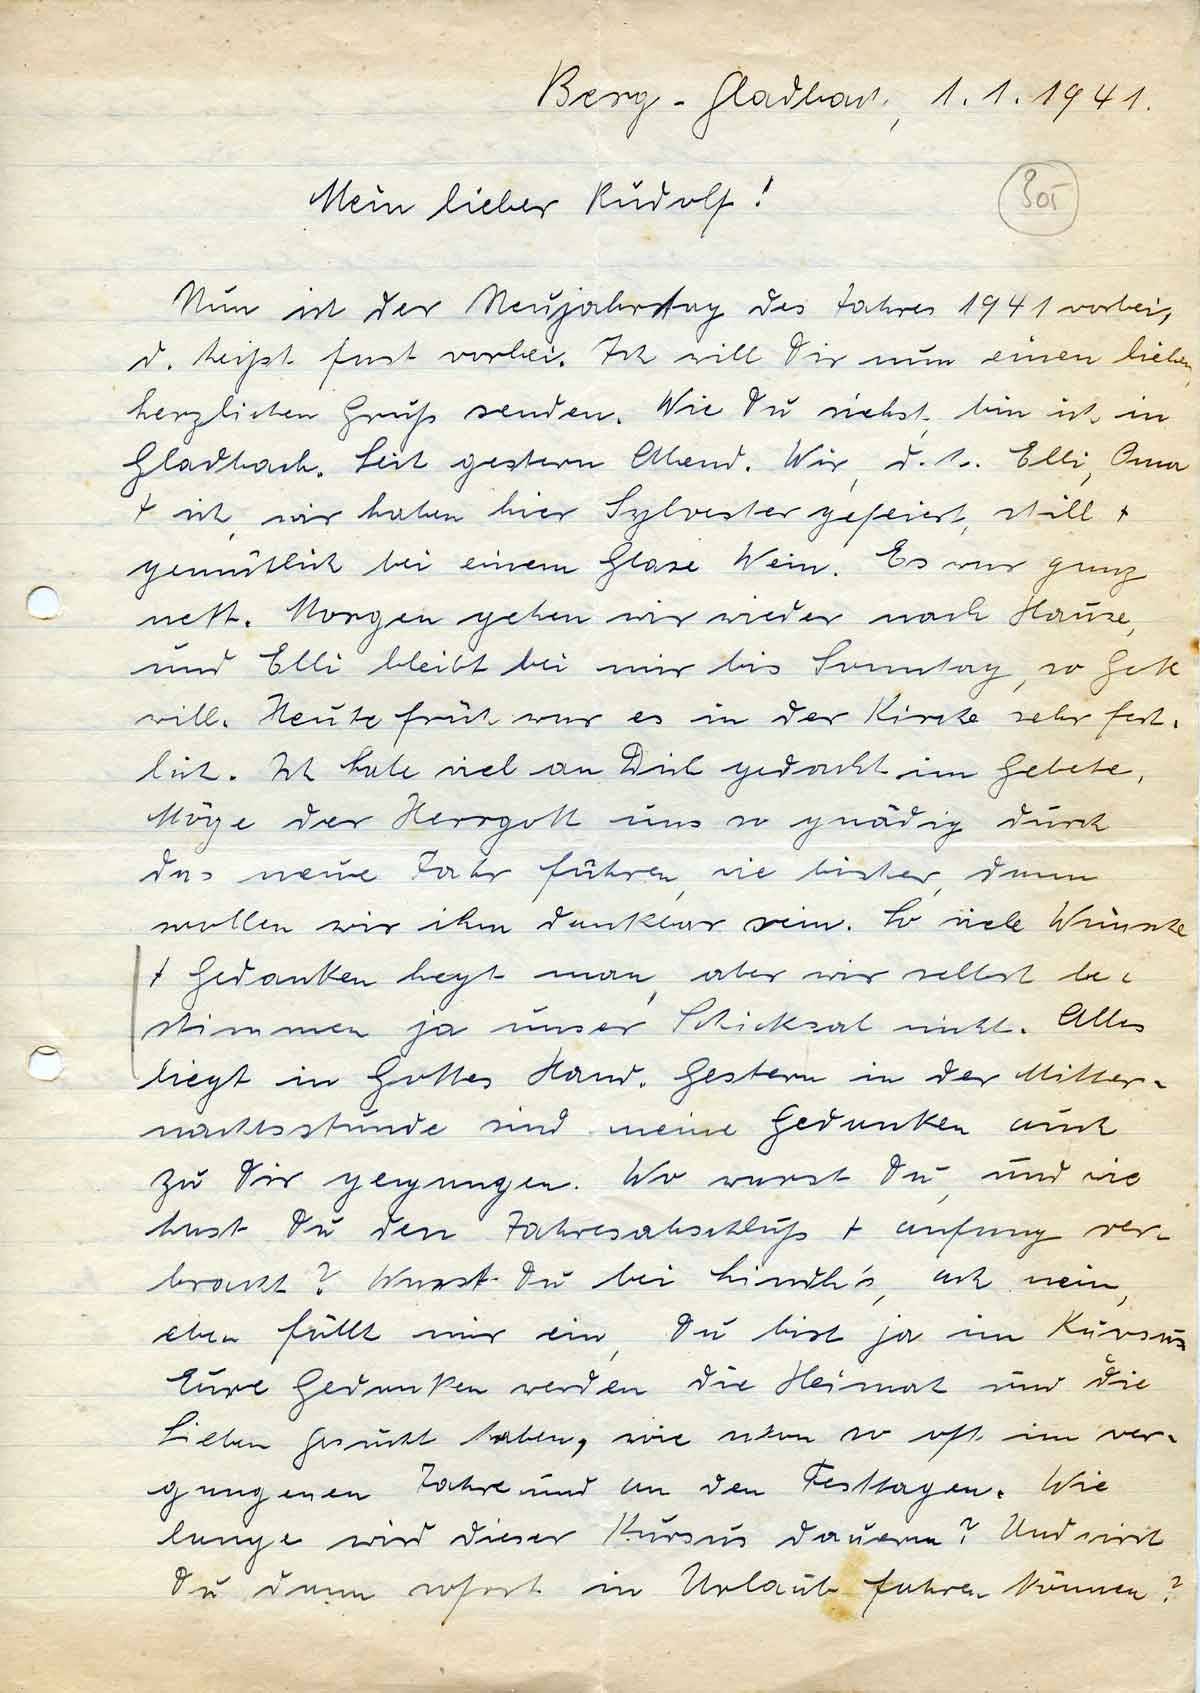 Berg-Gladbach, 1.1.1941.
305
Mein lieber Rudolf!
Nun ist der Neujahrstag des Jahres 1941 vorbei,
d. heißt fast vorbei. Ich will Dir nun einen lieben,
herzlichen Gruß senden. Wie Du siehst, bin ich in
Gladbach. Seit gestern Abend. Wir, d.h. Elli, Oma
+ ich, wir haben hier Sylvester gefeiert, still +
gemütlich bei einem Glase Wein. Es war ganz
nett. Morgen gehen wir wieder nach Hause,
und Elli bleibt bei mir bis Sonntag, so Gott
will. Heute früh war es in der Kirche sehr fest-
lich. Ich habe viel an Dich gedacht im Gebete.
Möge der Herrgott uns so gnädig durch
das neue Jahr führen, wie bisher, dann
wollen wir ihm dankbar sein. So viele Wünsche
+ Gedanken hegt man, aber wir selbst be-
stimmen ja unser Schicksal nicht. Alles
liegt in Gottes Hand. Gestern in der Mitter-
nachtsstunde sind meine Gedanken auch
zu Dir gegangen. Wo warst Du, und wie
hast Du den Jahresabschluß + anfang ver-
bracht? Warst Du bei Lindh's, ach nein,
eben fällt mir ein, Du bist ja im Kursus
Eure Gedanken werden die Heimat und die
Lieben gesucht haben, wie schon so oft im ver-
gangenen Jahre und an den Festtagen. Wie
lange wird dieser Kursus dauern? Und wirst
Du dann sofort in Urlaub fahren können?